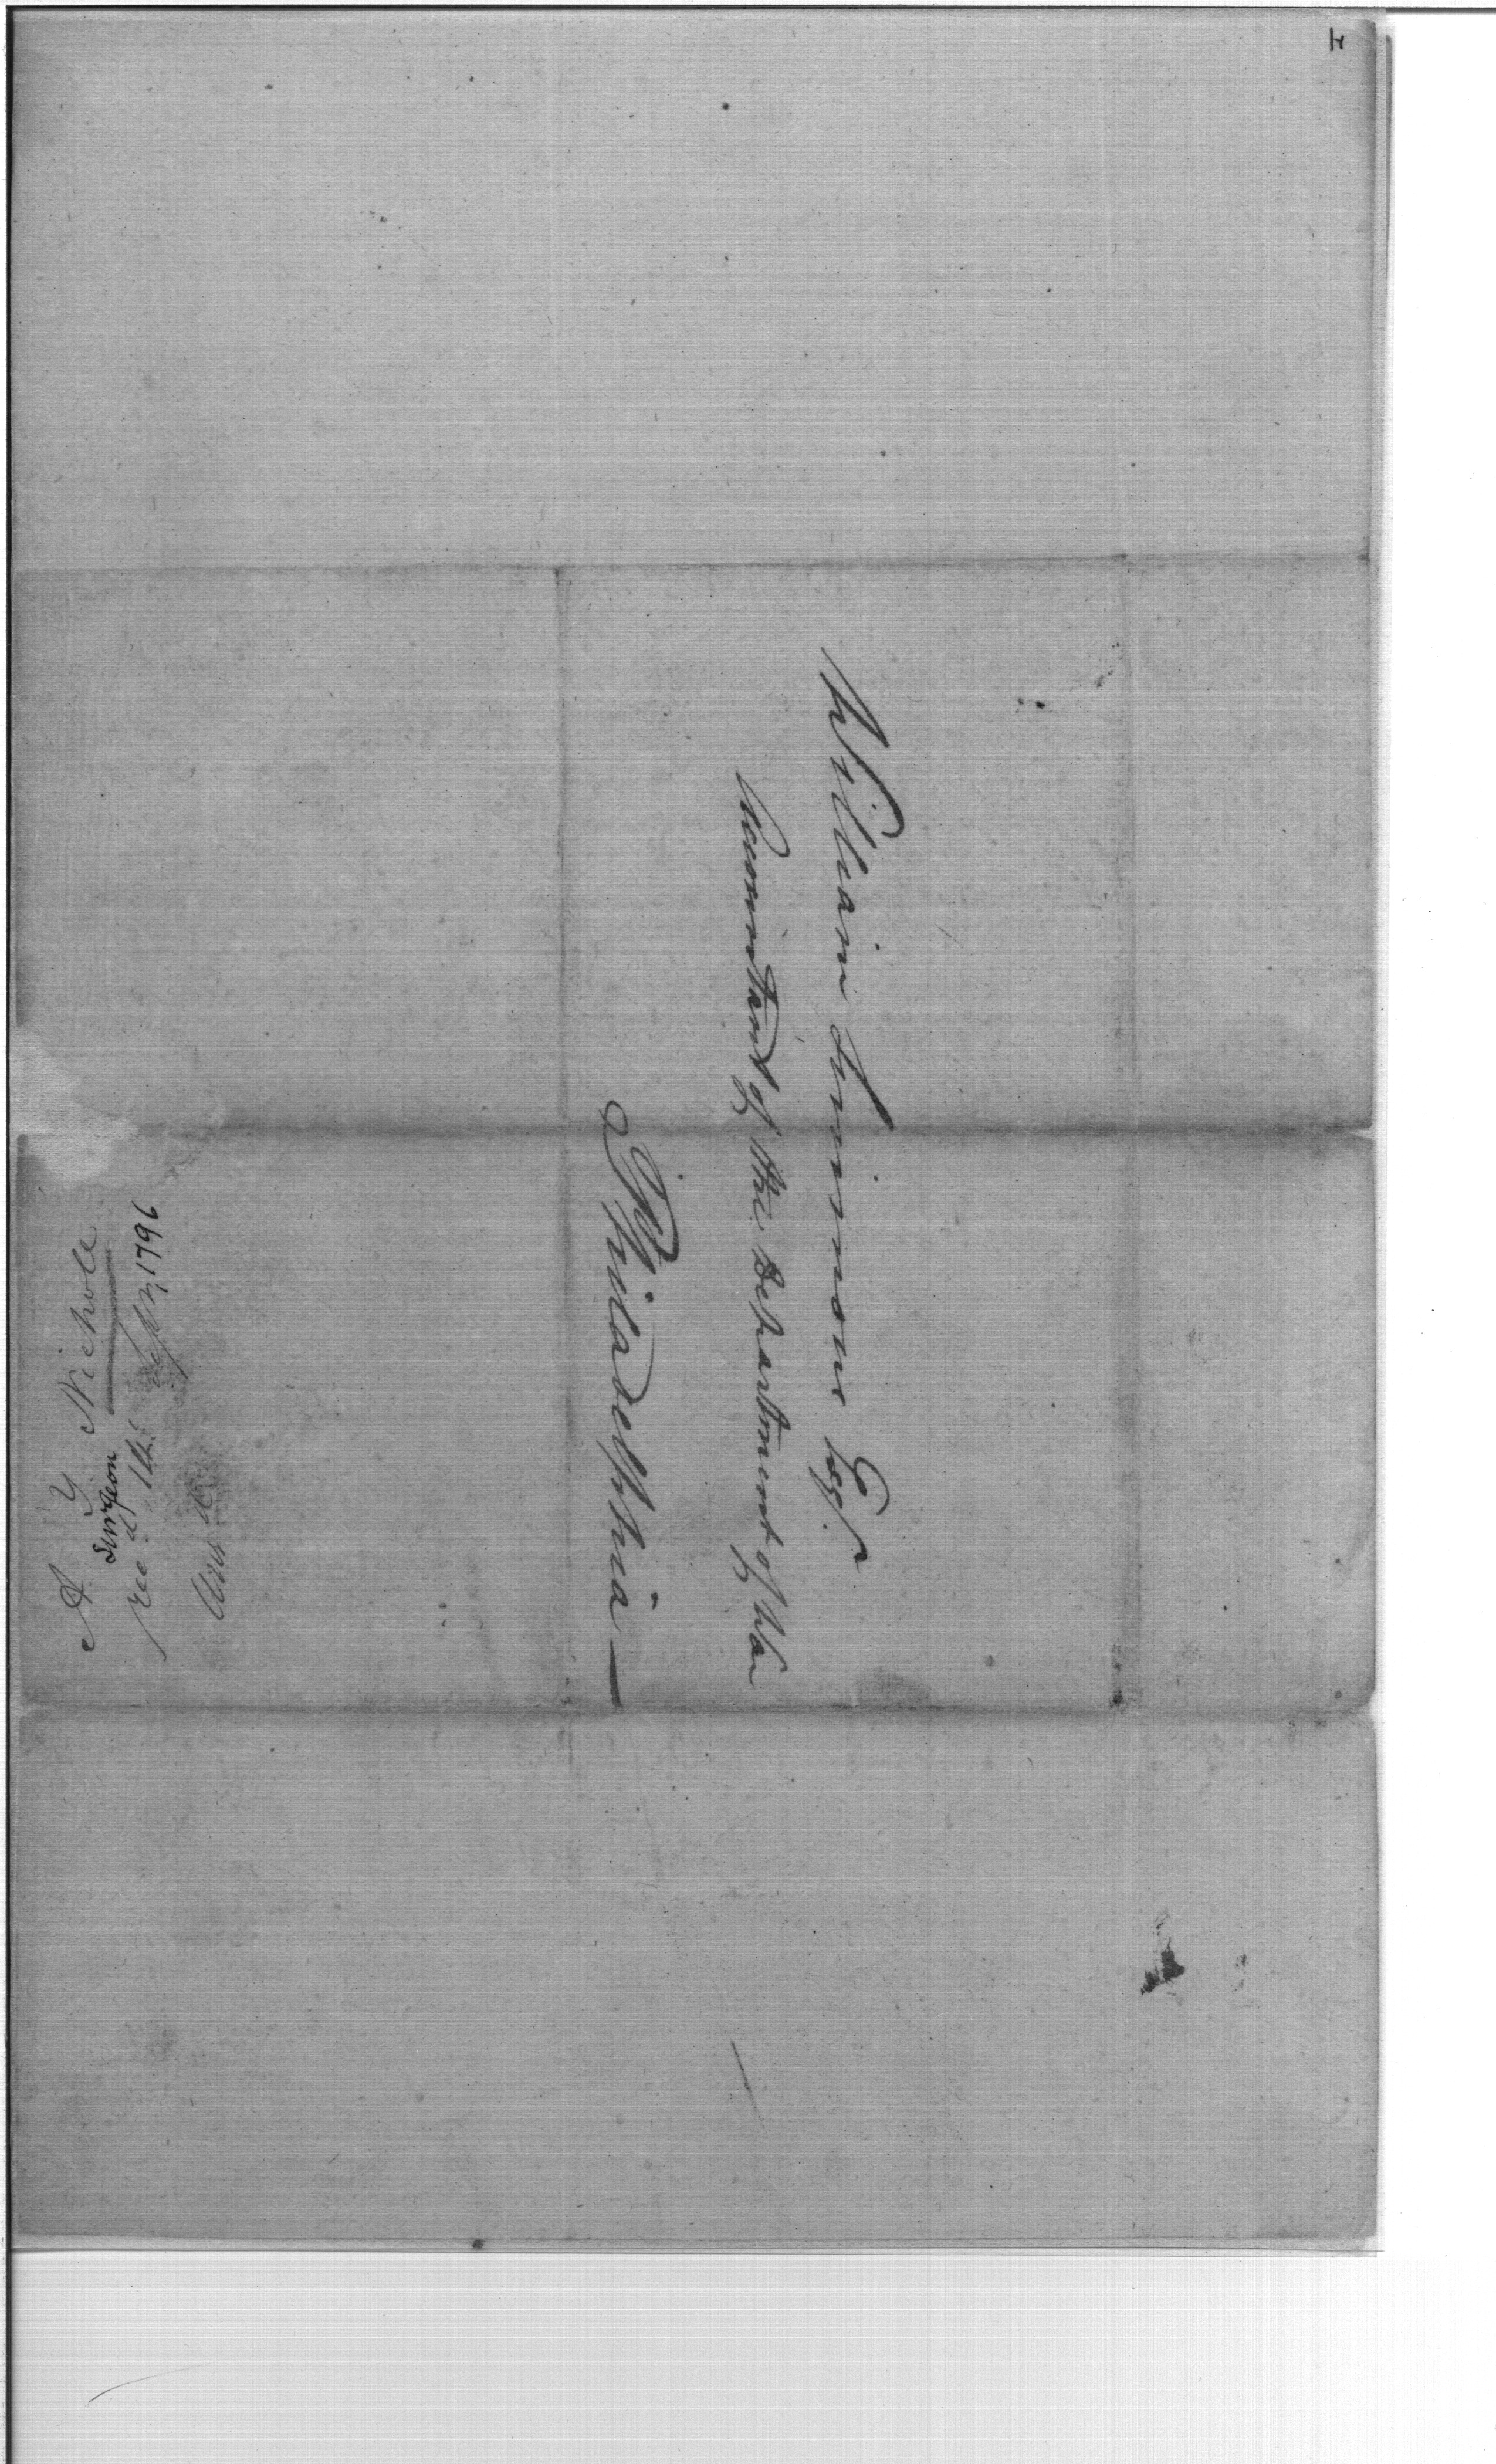 William Simmons Esqr.
Accountant of the Department of War
Philadelphia —
A Y Nicholl
Surgeon
recd. 14 Septr. 1796